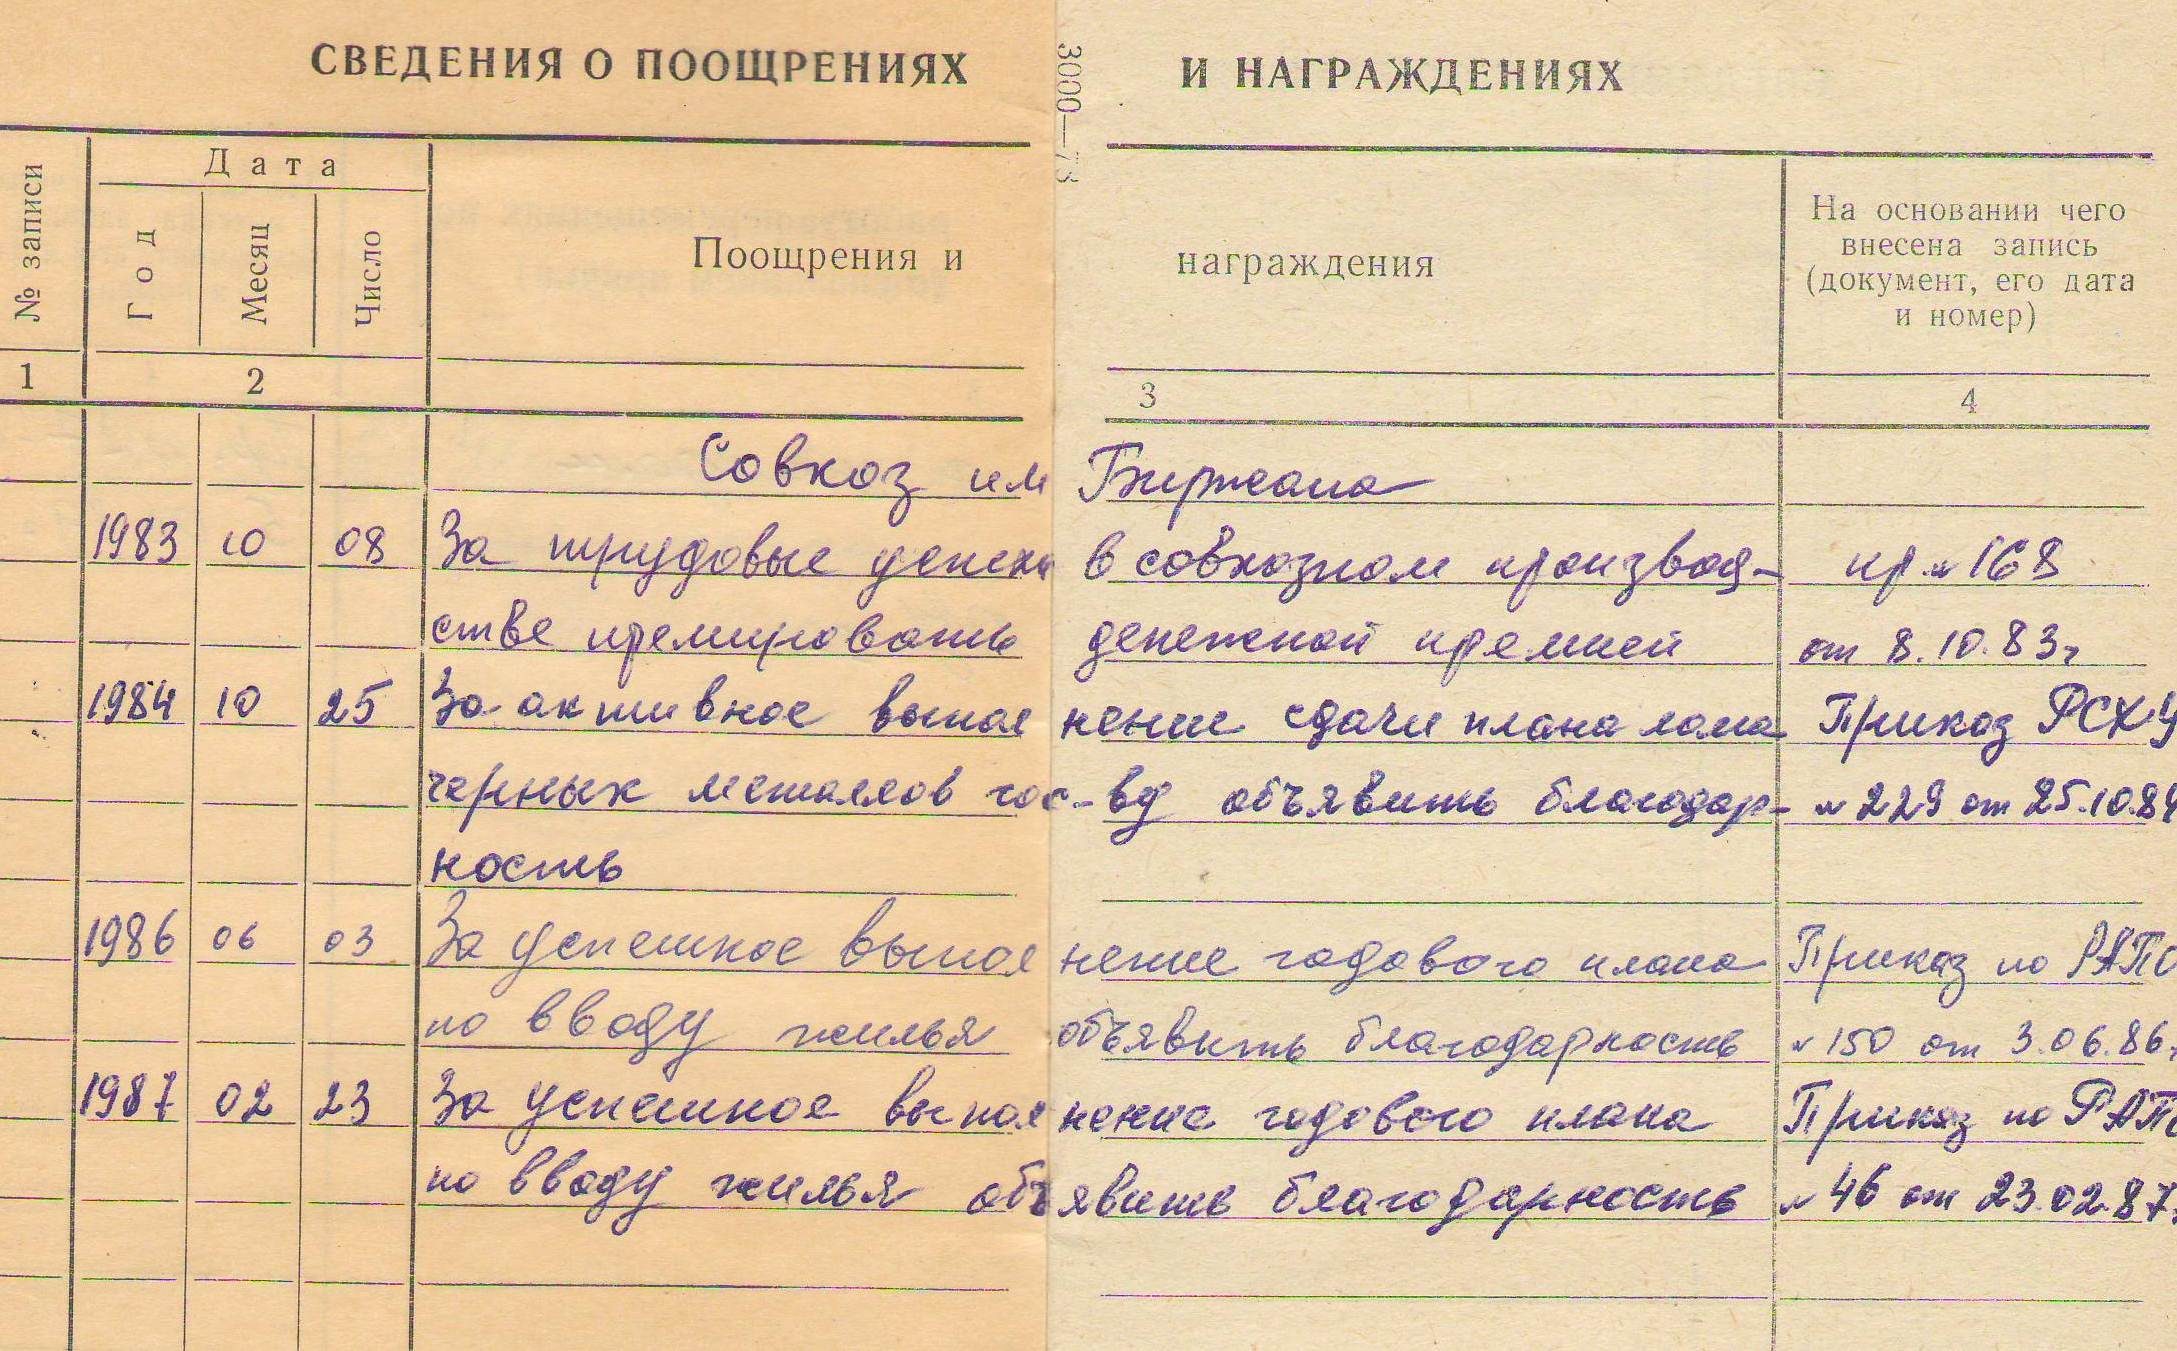 СВЕДЕНИЯ О ПООЩРЕНИЯХ И НАГРАЖДЕНИЯХ
3000—73
№ записи
Дата
Год
Месяц
Число
Поощрения и награждения
На основании чего
внесена запись
(документ, его дата
и номер)
1 2 3 4
Совхоз им Биржана
1983 10 08 За трудовые успехи в совхозном производ- пр № 168
стве премировать денежной премией от 8.10.83г
1984 10 25 За активное выпол нение сдачи плана лома Приказ РСХУ
черных металлов гос-ву объявить благодар- № 229 от 25.10.84
ность
1986 06 03 За успешное выпол нение годового плана Приказ по РАПО
по вводу жилья объявить благодарность № 150 от 3.06.86г
1987 02 23 За успешное выпол нение годового плана Приказ по РАПО
по вводу жилья объявить благодарность № 46 от 23.02.87г